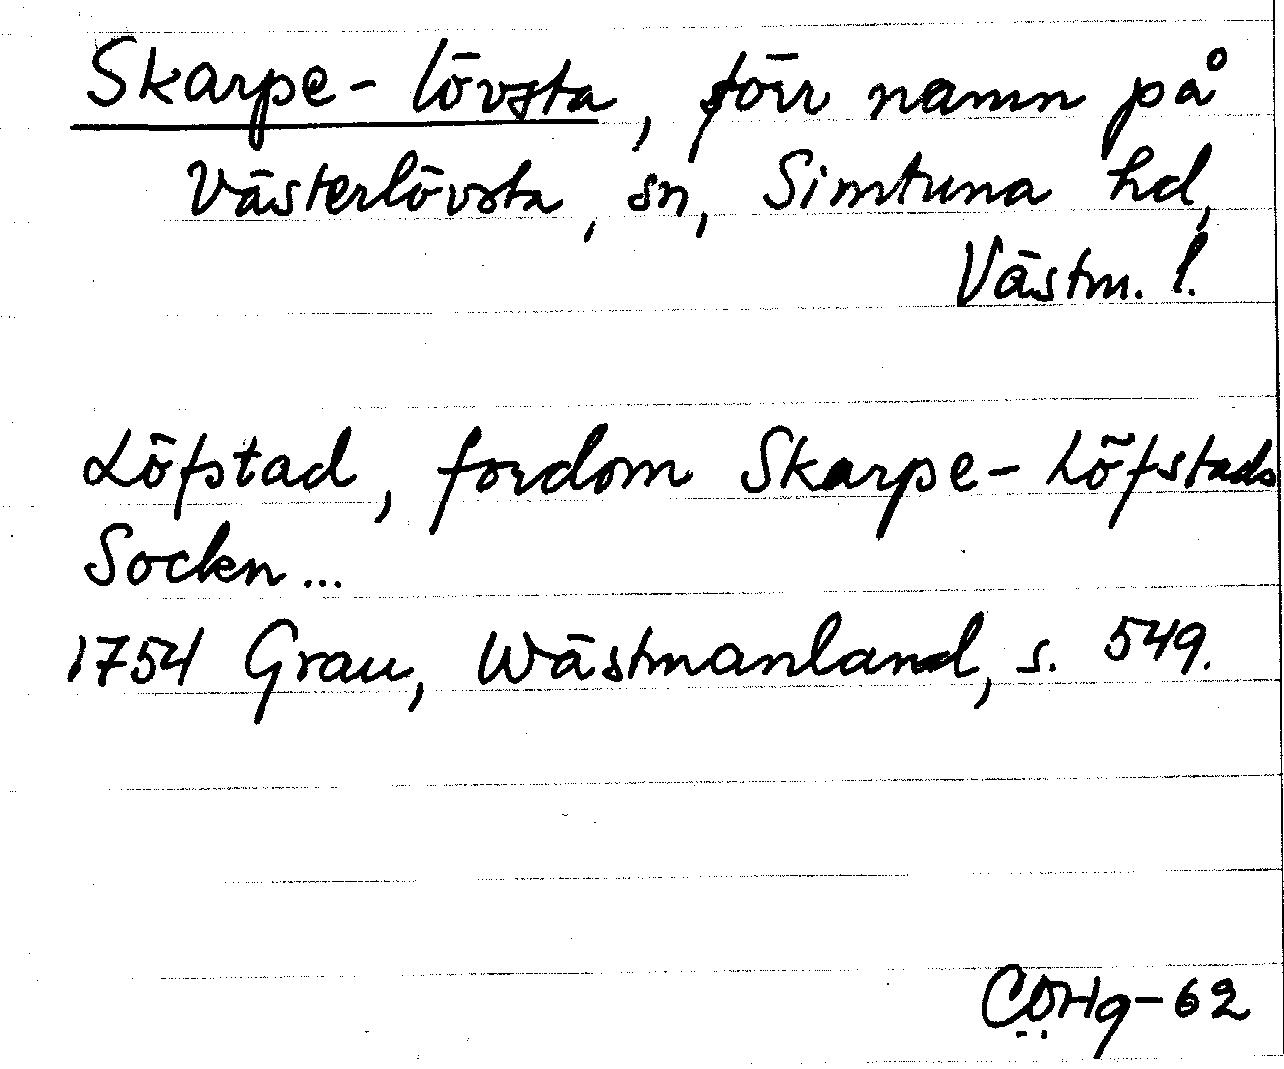 Skarpe-lövsta, förr namn på
Västerlövsta, sn, Simtuna hd,
Västm. l.
Löfstad, fordom Skarpe-Löfstads
Sockn...
1754 Grau, Wästmanland, s. 549.
CÖHg-62